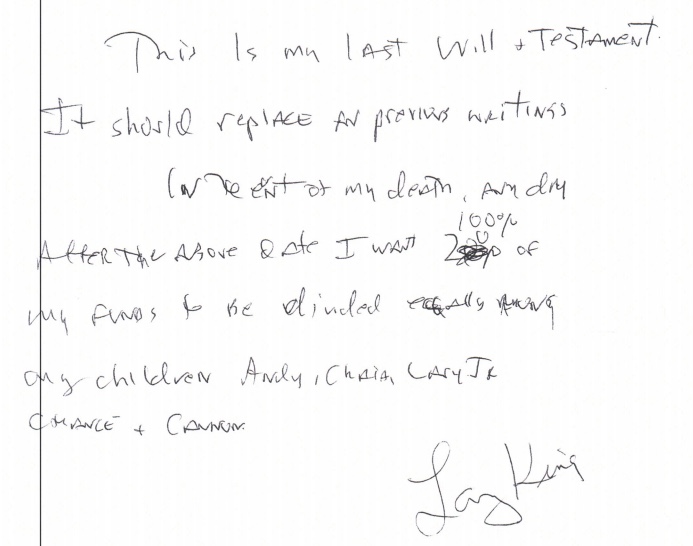 This Is my last Will + Testament.
It should replace all previous writings
In the event of my death, any day
After the above date I want
100%
of
my funds to be divided equally among
my children Andy, Chaia, Larry Jr
Chance + Cannon
Larry King